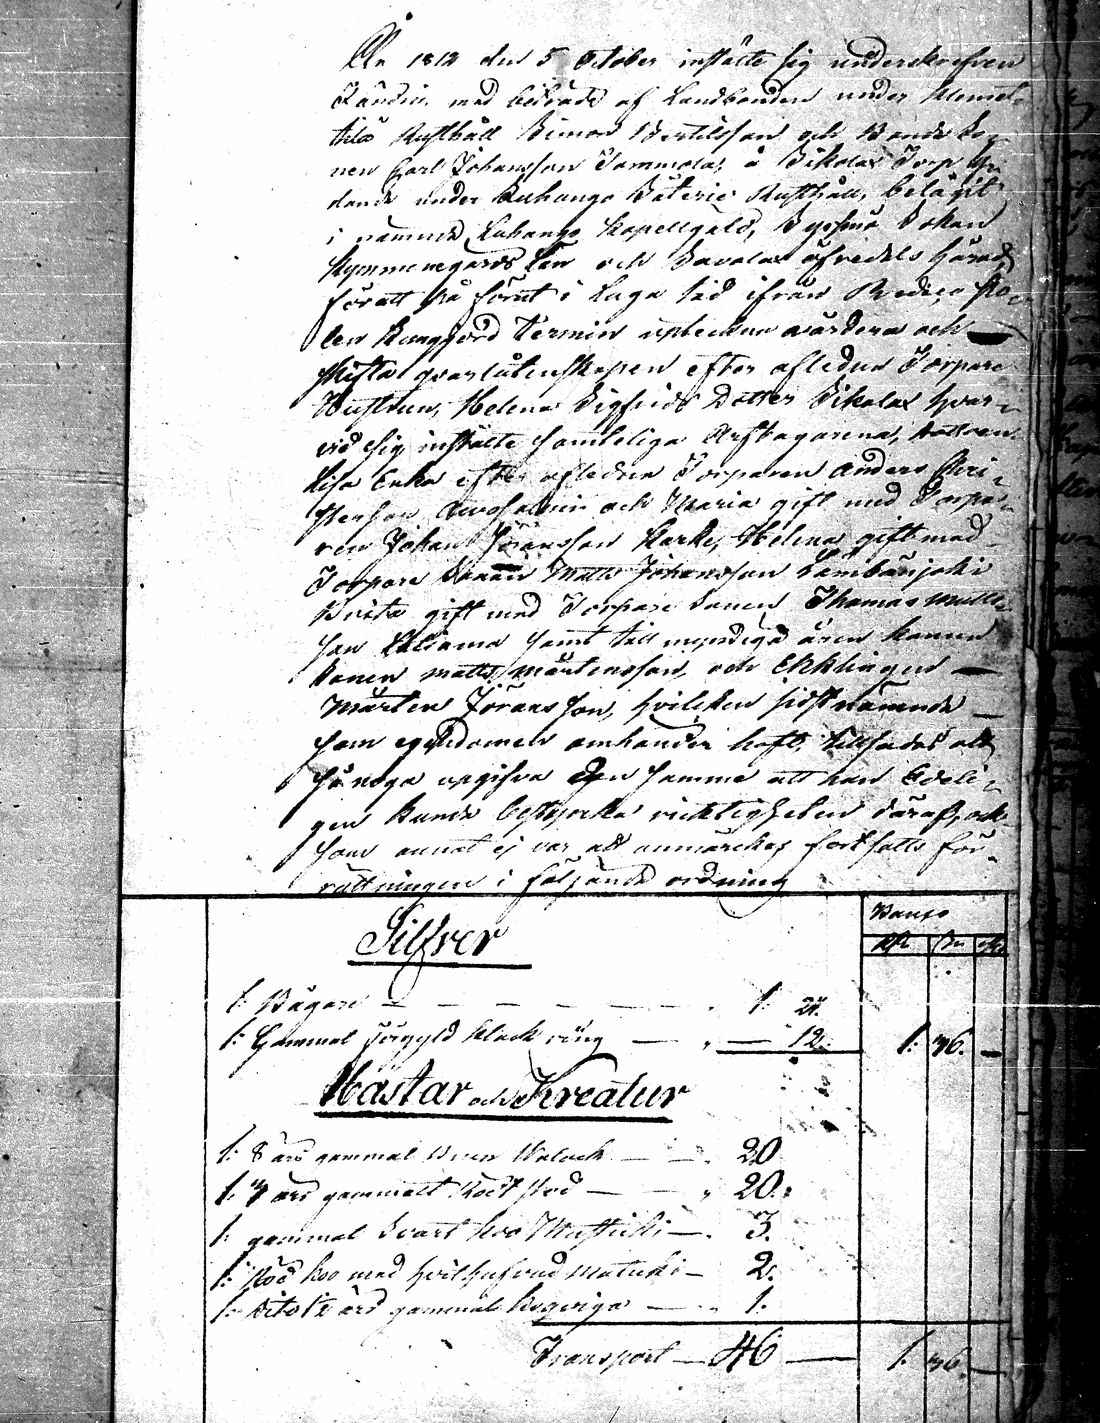 År 1812 den 5 October instälte sig underskrefven
med biträde af Landbonden under
Rusthåll Simon Bertilsson och Bonde So-
nen Carl Johansson Tammola, å Sikolax Torp ly-
dande under Rusthåll, belägit
i nämnde Luhango Kapellgäld, Sysmä Sokn
Kymmenegårds Län och Savolax öfredels Härad
föratt på förut i Laga tid ifrån
len kungjord Termin upteckna värdera och
skifta qvarlåtenskapen efter afledna Torpare
Hustrun, Helena Sigfrids Dotter Sikolax hvar-
vid sig instälte samteliga Arftagarena,
Lisa Enka efter afledna Torparen Anders Chri-
stersson och Maria gift med Torpa-
ren Johan Jöransson Harke, Helena gift med
Torpare Sonen Matts Johansson
Brita gift med Torpare Sonen Thomas Matts-
son samt till myndiga åren komne
Sonen Matts Mårtensson, och Ekklingen
Mårten Jöransson, hvilken sidstnämnde
som egendomen omhänder haft, tillsades att
så noga upgifva den samma att han Edeli-
gen kunde bestyrcka ricktigheten däraf, och
som annat ej var att anmärcka fortsatts för-
rättningen i följande ordning
Banco
Rd Sk
Silfver
1: Bägare 1: 24.
1: Gammal förgyld klack ring 12. 1: 36.
Hästar och Kreatur
1: 8 års gammal Brun Valack 20
1: 7 års gammalt Rödt Stod 20.
1: gammal Svart Koo Mustiki 3.
1: Röd Koo med hvit hufvud Matuki 2.
1: års gammal 1.
Transport 46 1: 36.